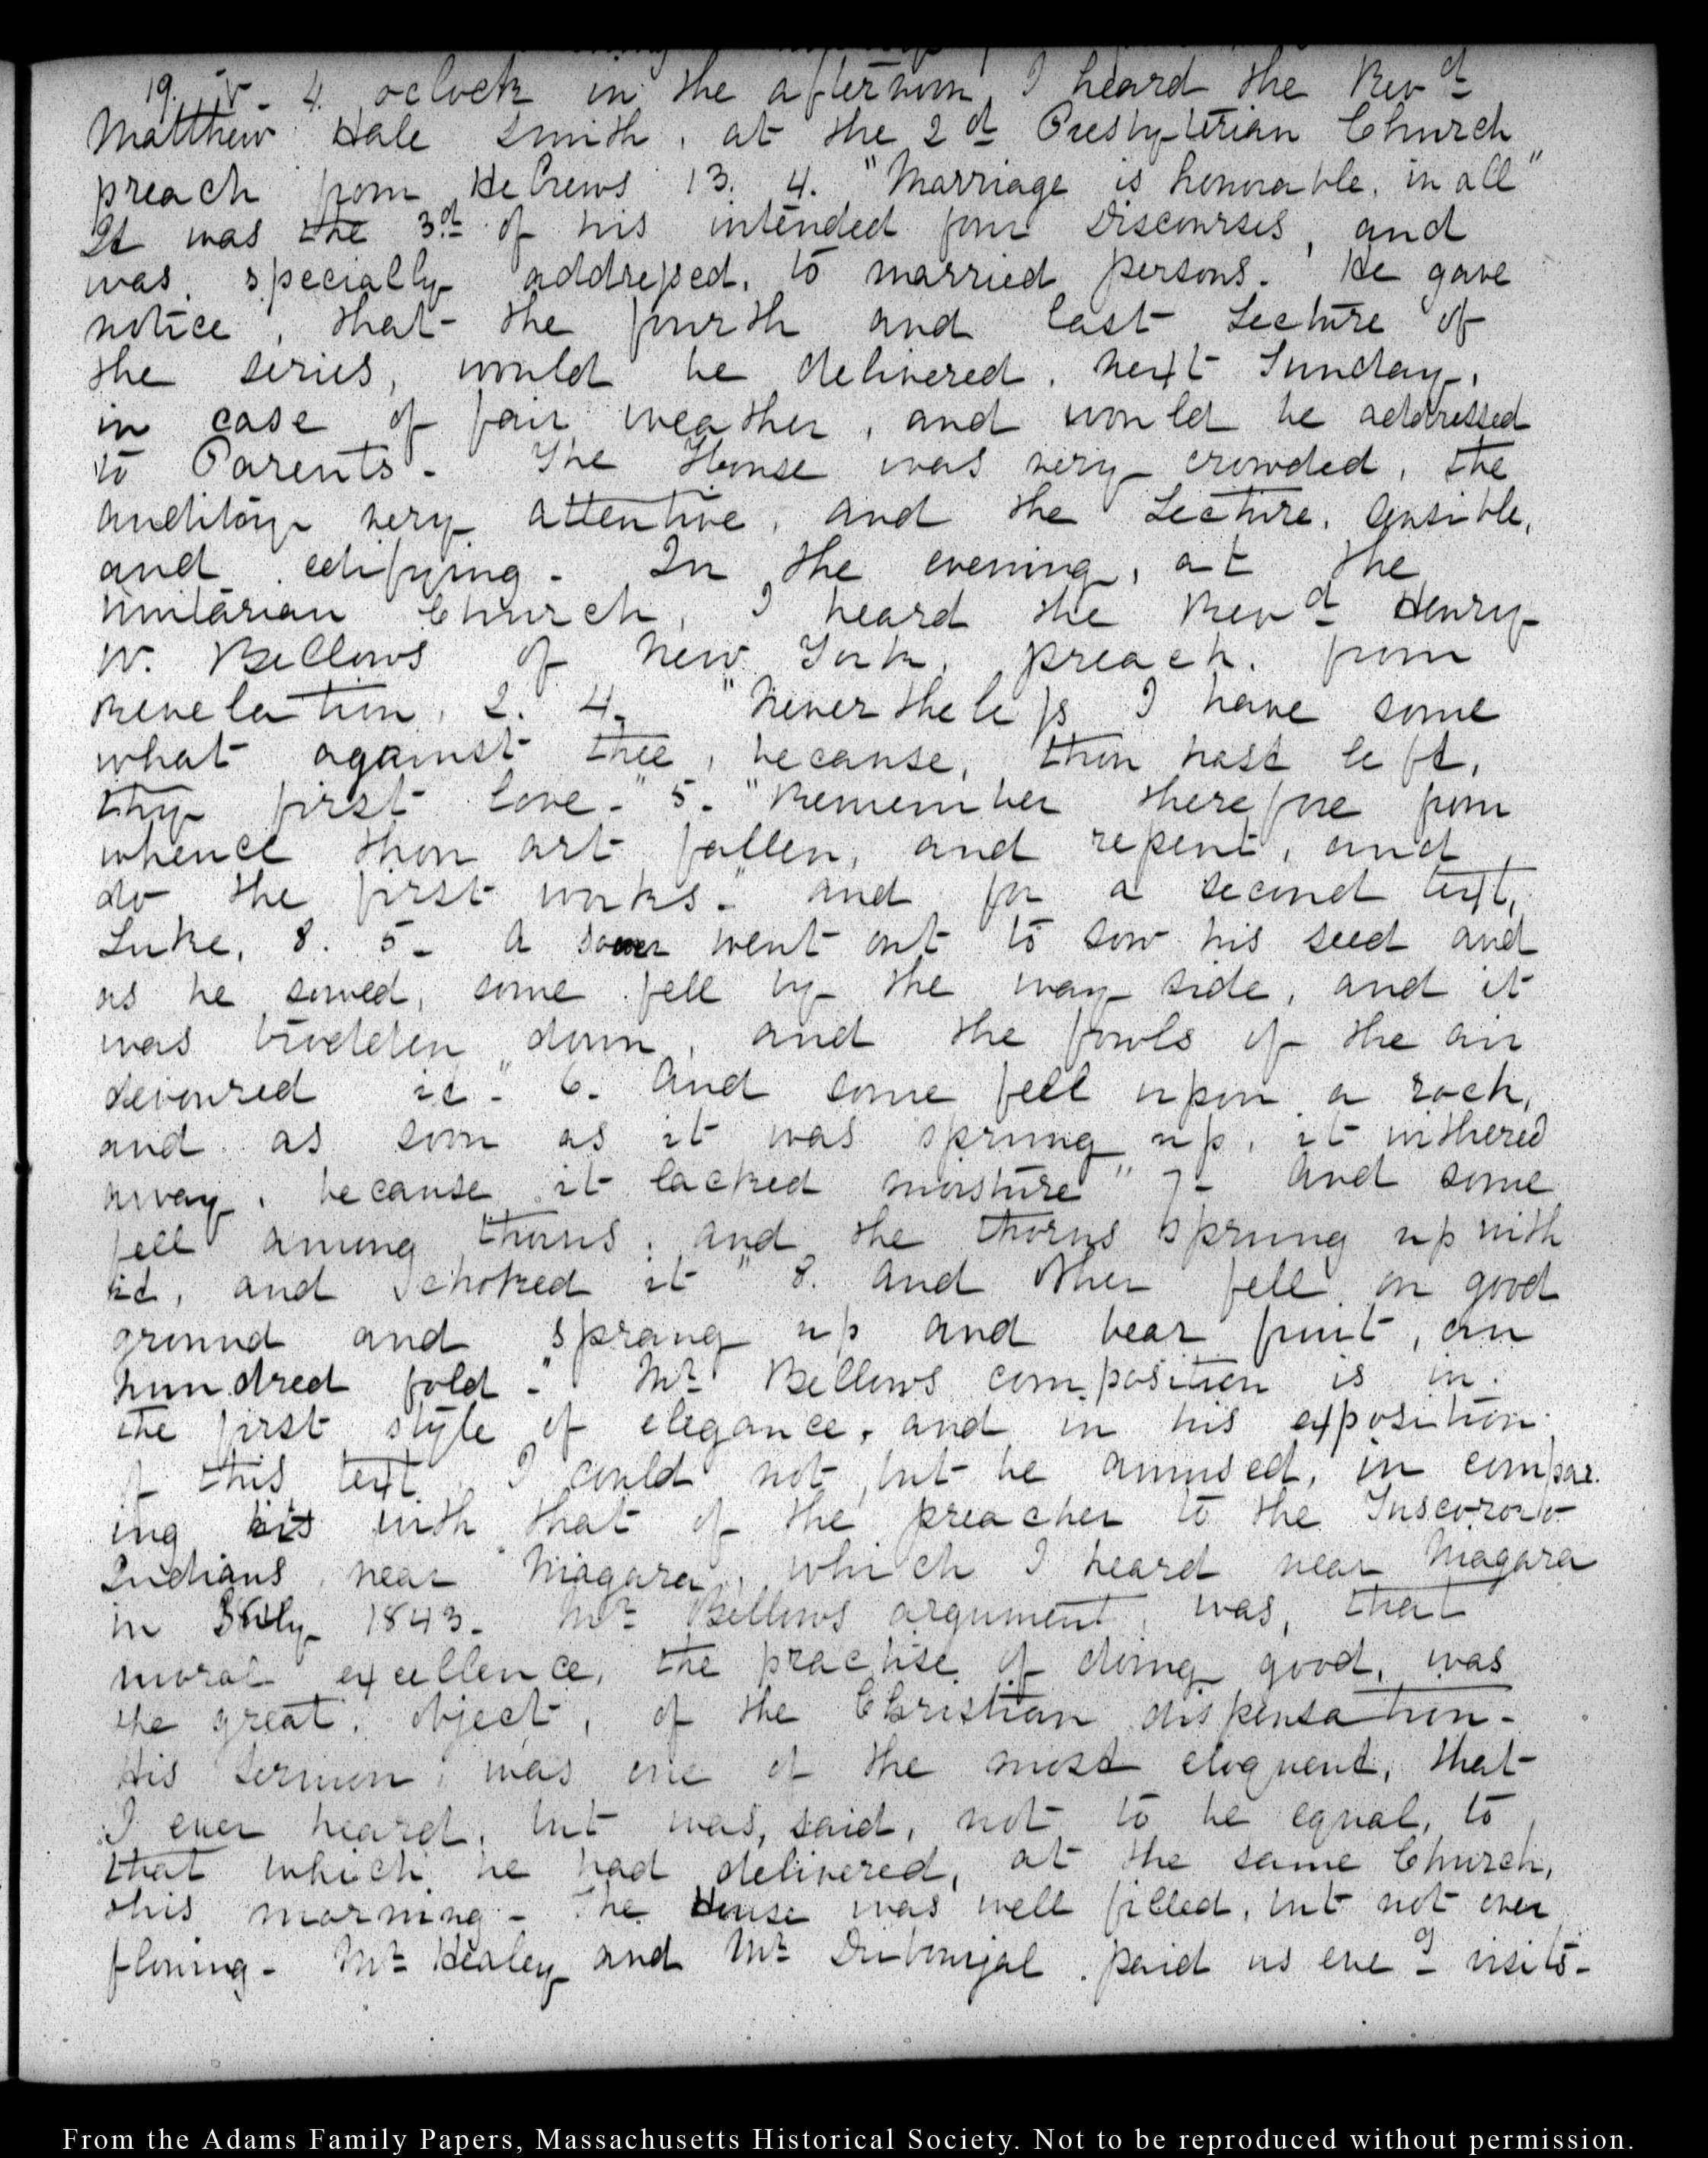 19. V. 4. oclock in the afternoon, I heard the Revd
Matthew Hale Smith, at the 2d Presbyterian Church
preach from Hebrews 13. 4. "Marriage is honorable, in all"
It was the 3d of his intended four Discourses, and
was, specially addressed, to married persons. He gave
notice, that the fourth and last Lecture of
the series, would be delivered, next Sunday,
in case of fair weather, and would be addressed
to Parents. The House was very crowded, the
auditory very attentive, and the Lecture, sensible,
and edifying. In the evening, at the
Unitarian Church, I heard the Revd Henry
W. Bellows of New York, preach, from
Revelation, 2. 4. "Nevertheless I have some
what against thee, because, thou hast left,
thy first love." 5. "Remember therefore from
whence thou art fallen, and repent, and
do the first works." and for a second text,
Luke, 8. 5. A sower went out to sow his seed and
as he sowed, some fell by the way side, and it
was trodden down, and the fowls of the air
devoured it." 6. And some fell upon a rock,
and as soon as it was sprung up, it withered
away, because it lacked moisture" 7. And some
fell among thorns, and the thorns sprung up with
it, and choked it" 8. And other fell on good
ground and sprang up and bear fruit, an
hundred fold." Mr Bellows composition is in
the first style of elegance, and in his exposition
of this text, I could not but be amused, in compar-
ing his with that of the preacher to the Tuscorora
Indians, near Niagara, which I heard near Niagara
in July 1843. Mr Bellows argument, was, that
moral excellence, the practise of doing good, was
the great, object, of the Christian dispensation.
His sermon, was one of the most eloquent, that
I ever heard, but was, said, not to be equal, to
that which he had delivered, at the same Church,
this morning. The House was well filled, but not over
flowing. Mr Healey and Mr Dubourjal paid us eveg visits.
From the Adams Family Papers, Massachusetts Historical Society. Not to be reproduced without permission.